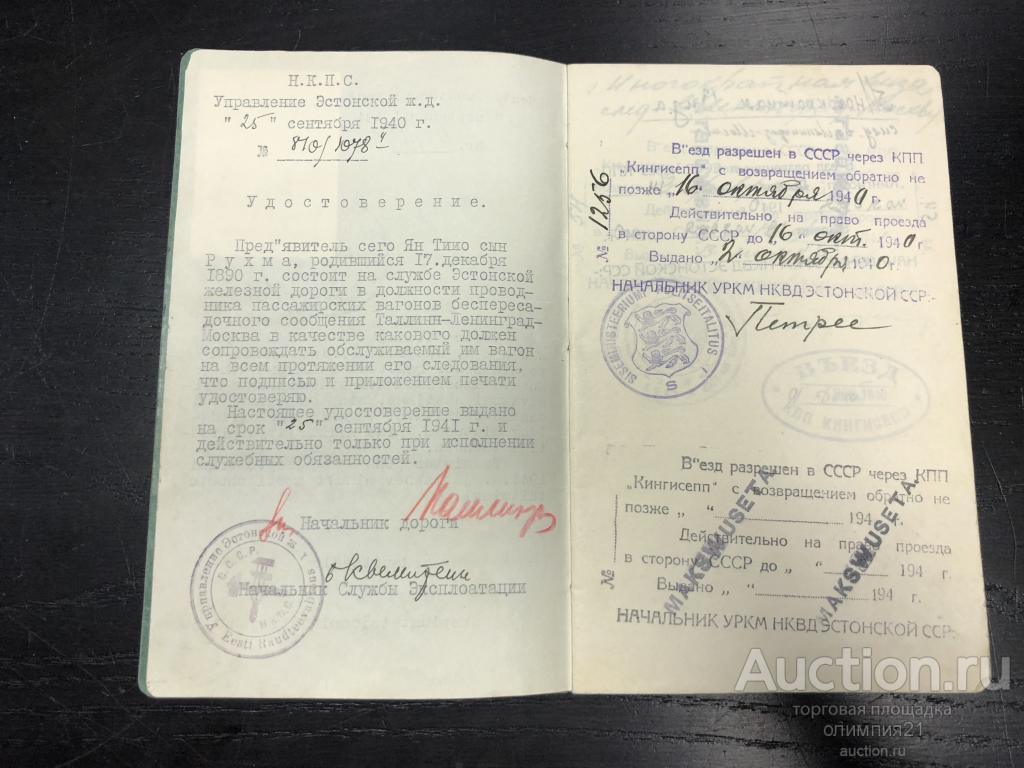 Н.К.П.С.
Управление Эстонской ж.д.
"25" сентября 1940 г.
№ 810/1078
Удостоверение.
Пред"явитель сего Ян Тимо сын
Рухма, родившийся 17. декабря
1890 г. состоит на службе Эстонской
железной дороги в должности провод-
ника пассажирских вагонов бесперeса-
дочного сообщения Таллинн-Ленинград-
Москва в качестве какового должен
сопровождать обслуживаемый им вагон
на всем протяжении его следования,
что подписью и приложением печати
удостоверяю.
Настоящее удостоверение выдано
на срок "25" сентября 1941 г. и
действительно только при исполнении
служебных обязанностей.
Начальник дороги
Начальник Службы Эксплоатации
Управление Эстонской ж.
С.С.С.Р.
Н.К.П.С.
Eesti Raudteevalitsus
Многократная виза
В"езд разрешен в СССР через КПП
„Кингисепп" с возвращением обратно не
позже „16" октября 1940 г.
Действительно на право проезда
в сторону СССР до „16" окт. 1940 г.
Выдано „2" октября 1940.
№ 1256
НАЧАЛЬНИК УРКМ НКВД ЭСТОНСКОЙ ССР:-
SISEMINISTEERIUMI
S
ВЪЕЗД
КПП КИНГИСЕПП
В"езд разрешен в СССР через КПП
„Кингисепп" с возвращением обратно не
позже „ " 194 г.
Действительно на право проезда
в сторону СССР до „ " 194 г.
Выдано „ " 194 г.
№
НАЧАЛЬНИК УРКМ НКВД ЭСТОНСКОЙ ССР:-
MAKSWUSETA
MAKSWUSETA
Auction.ru
торговая площадка
олимпия21
auction.ru